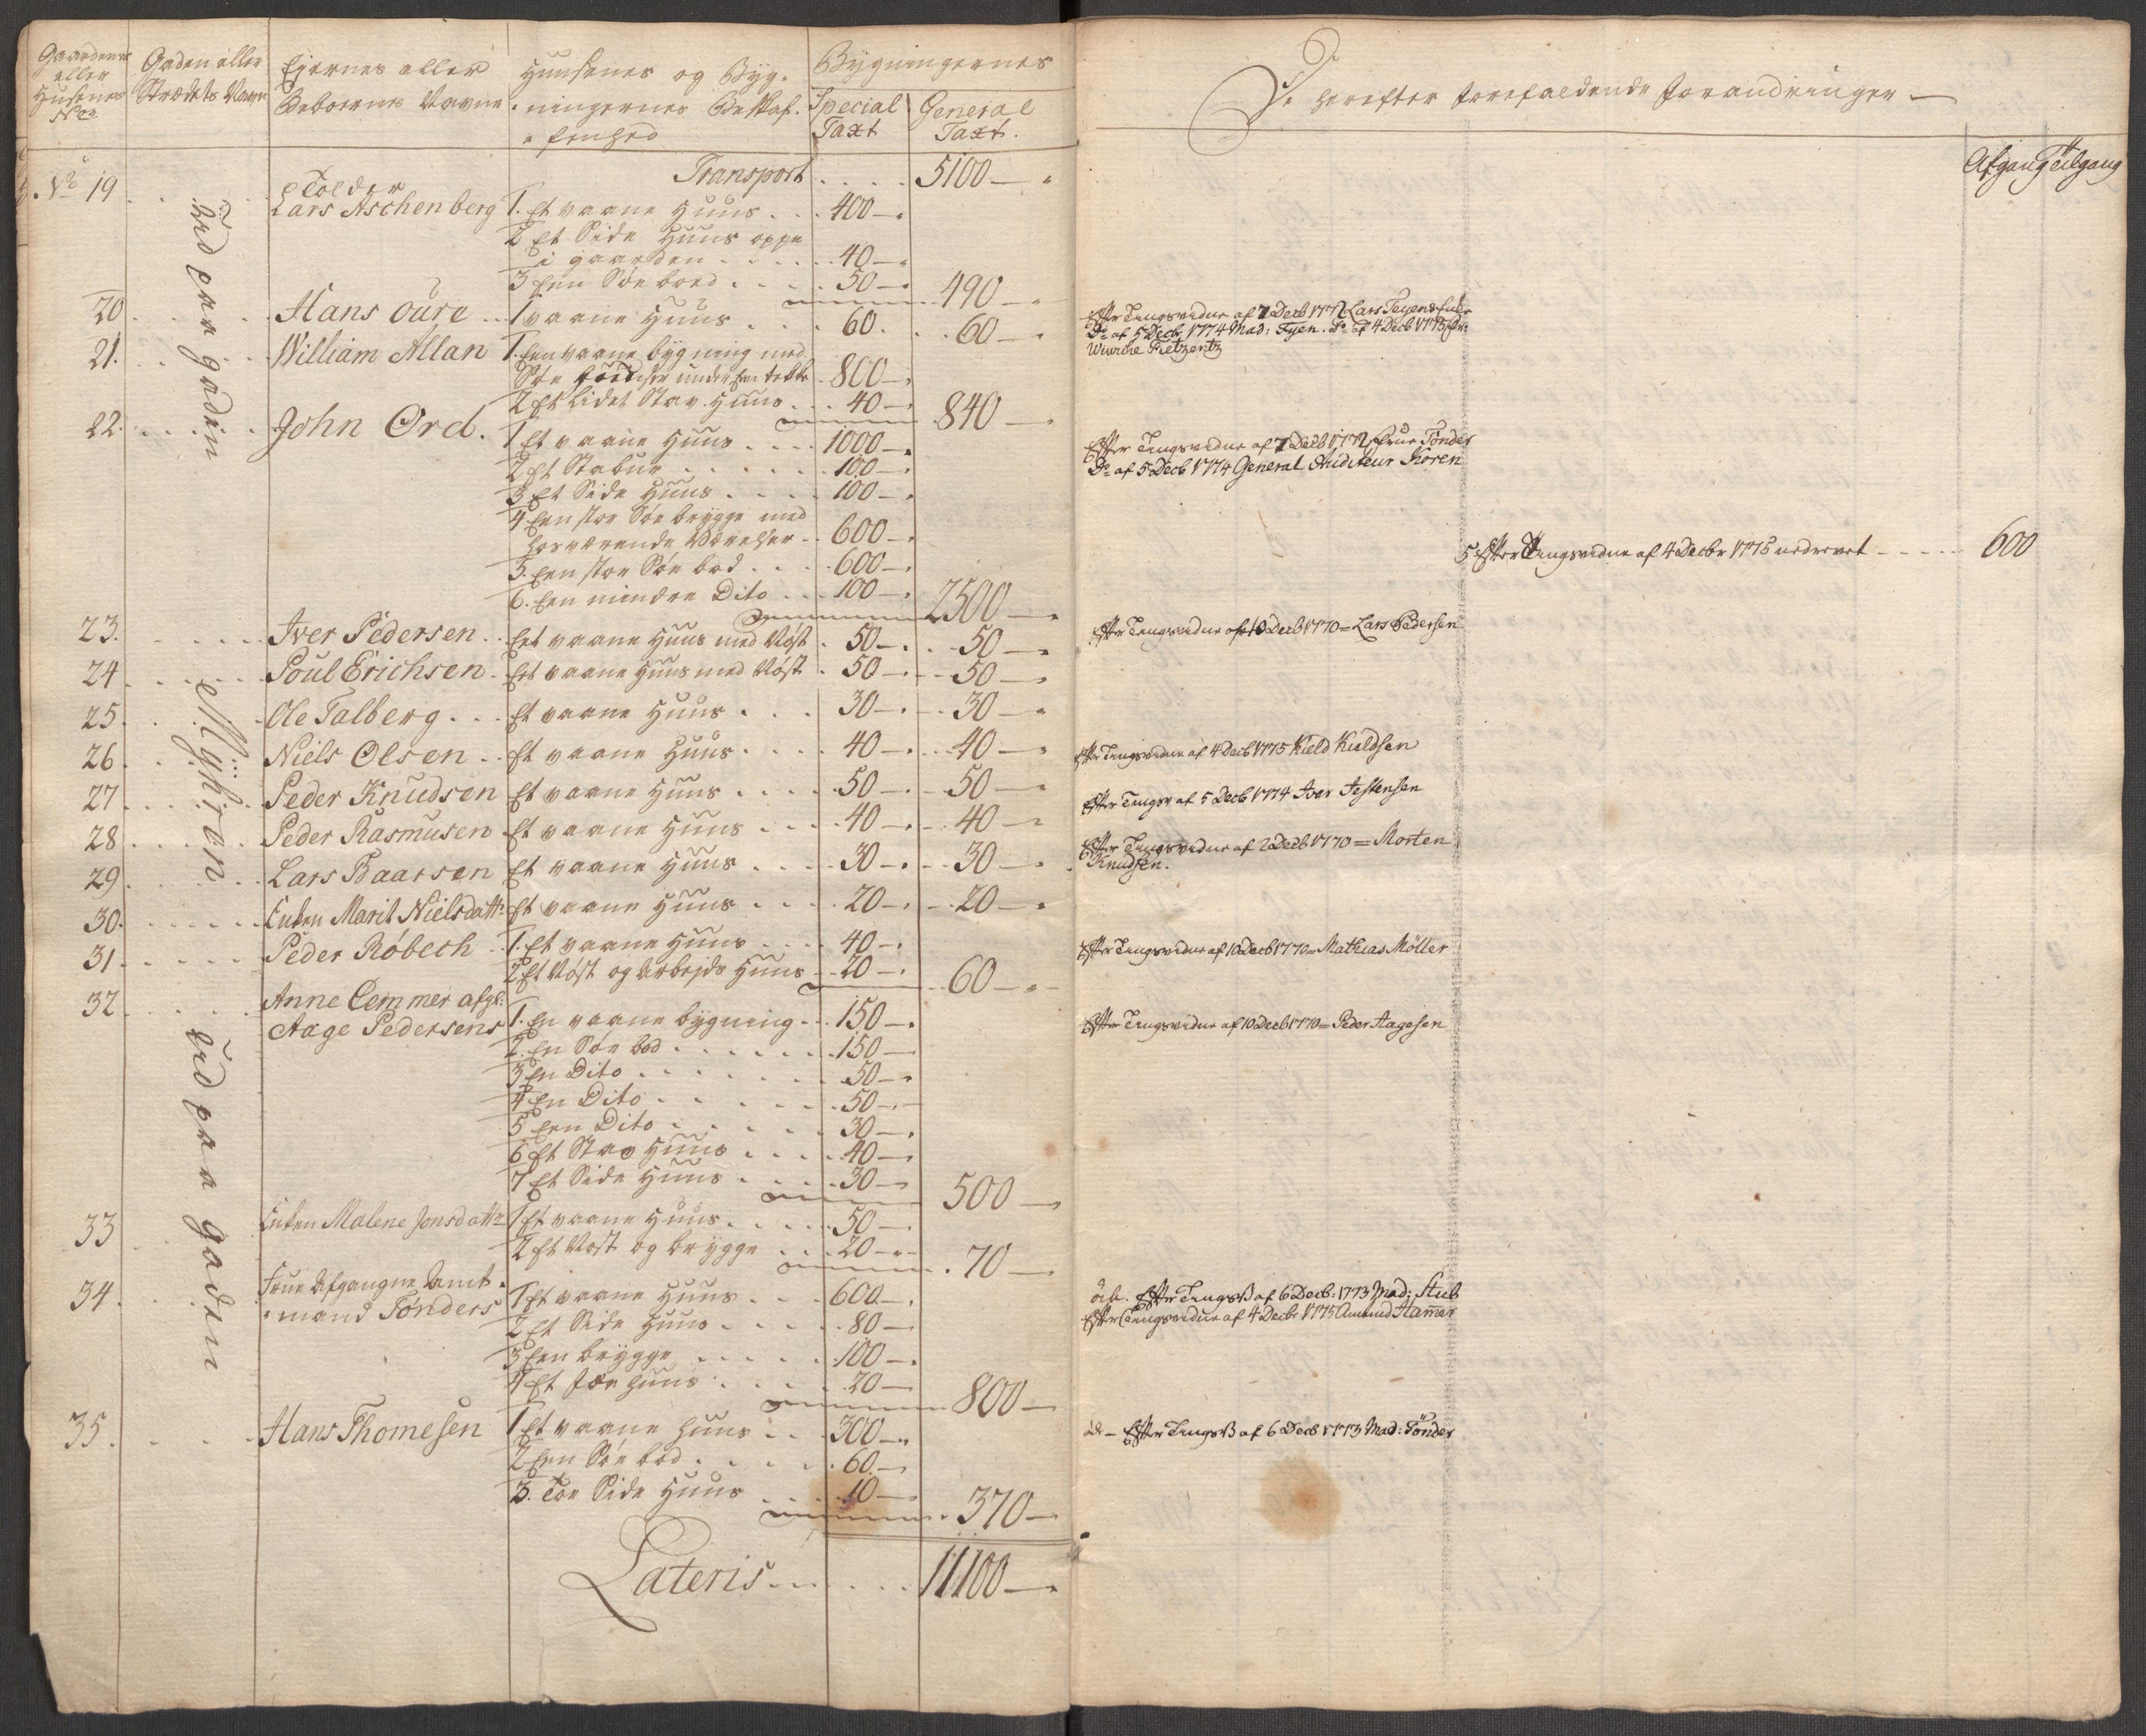 Gaardenes eller Husenes No
Gaden eller Strædets Navn
Ejernes eller Beboernes Navne
Huusenes og Byg-
ningernes Beskaf-
fenhed
Bygningernes
Special Taxt
General Taxt.
Transport . . . . 5100 —
No 19 Tolder
Lars Aschenberg 1. Et vaane Huus . . . 400 —
2 Et Side Huus oppe
i gaarden . . . . . 40 —
3 Een Søe boed . . . . 50 — 490 —
Ud paa gaden
20 Hans Oure 1 vaane Huus . . . 60. 60 —
21. William Allan 1. Een vaane bygning med
800 —
2 Et Lidet Stav Huus . . . 40 — 840 —
22. John Ord. 1 Et vaane Huus . . . . 1000 —
2 Et Stabur . . . . . . 100 —
3 Et Side Huus . . . . 100 —
4 Een stor Søe brygge med
hosværende Værelser . . 600 —
5. Een stor Søe bod . . . . 600 —
6. Een mindre Dito . . . 100 — 2500 —
23. Iver Pedersen Eet vaane Huus med Nøst . 50 — 50 —
24 Poul Erichsen Eet vaane Huus med Nøst . 50 — 50 —
25. Ole Talberg . . . Et vaane Huus . . . 30 — 30 —
Myhren
26. Niels Olsen Et vaane Huus . . . . 40 — 40 —
27 Peder Knudsen Et vaane Huus . . . . . 50 — 50 —
28 Peder Rasmusen Et vaane Huus . . . . 40 — 40 —
29 Lars Baarsen Et vaane Huus . . . . 30 — 30 —
30. Enken Marit Nielsdattr Et vaane Huus . . . . 20 — 20 —
31 Peder Røbech 1. Et vaane Huus . . . . 40 —
2 Et Nøst og Arbejds Huus . 20 — 60 —
32 Anne Cemmer afgl:
Aage Pedersens 1. En vaane bygning . . . 150 —
2. En Søe bod . . . . . . 150 —
3 En Dito . . . . . . . 50 —
4 En Dito . . . . . . . 50 —
5 Een Dito . . . . . . 30 —
6 Et Stav Huus . . . . 40 —
7 Et Side Huus . . . . 30 — 500 —
Ud paa gaden
33 Enken Malene Jonsdattr 1 Et vaane Huus . . . . . 50 —
2 Et Nøst og brygge . . . 20 — 70 —
34 Frue Afgangne Amt-
mand Tønders 1 Et vaane Huus . . . 600 —
2 Et Side Huus . . . . . 80 —
3 Een brygge . . . . . 100 —
4 Et Føe huus . . . . 20 — 800 —
35. Hans Thomesen 1 Et vaane huus . . . 300 —
2 Een Søe bod . . . . . 60 —
3. Toe Side Huus . . . . 10 — 370 —
Lateris . . . . . . 11100 —
De herefter forefaldende forandringer —
Afgang Tilgang
Efter Tingsvidne af 7 Decb 1772 Lars
Do af 5 Decb 1774 Mad: Tyen. Do af 4 Decb 1775
Efter Tingsvidne af 7 Decb 1772 Frue Tønder
Do af 5 Decb 1774 General Auditeur Koren
5 Efter Tingsvidne af 4 Decbr 1775 nedrevet . . . . 600
Efter Tingsvidne af 10 Decb 1770 = Lars Pedersen
Efter Tingsvidne af 4 Decb 1775 Kield Kieldsen
Efter Tingsv af 5 Decb 1774 Iver Jestensen
Efter Tingsvidne af 2 Decb 1770 = Morten
Knudsen.
Efter Tingsvidne af 10 Decb 1770 = Mathias Møller
Efter Tingsvidne af 10 Decb 1770 = Peder Aagesen
Efter Tings af 6 Decb: 1773 Mad: Stub
Efter Tingsvidne af 4 Decbr 1775 Amtmd Hamer
Efter Tings af 6 Decb 1773 Mad: Tønder